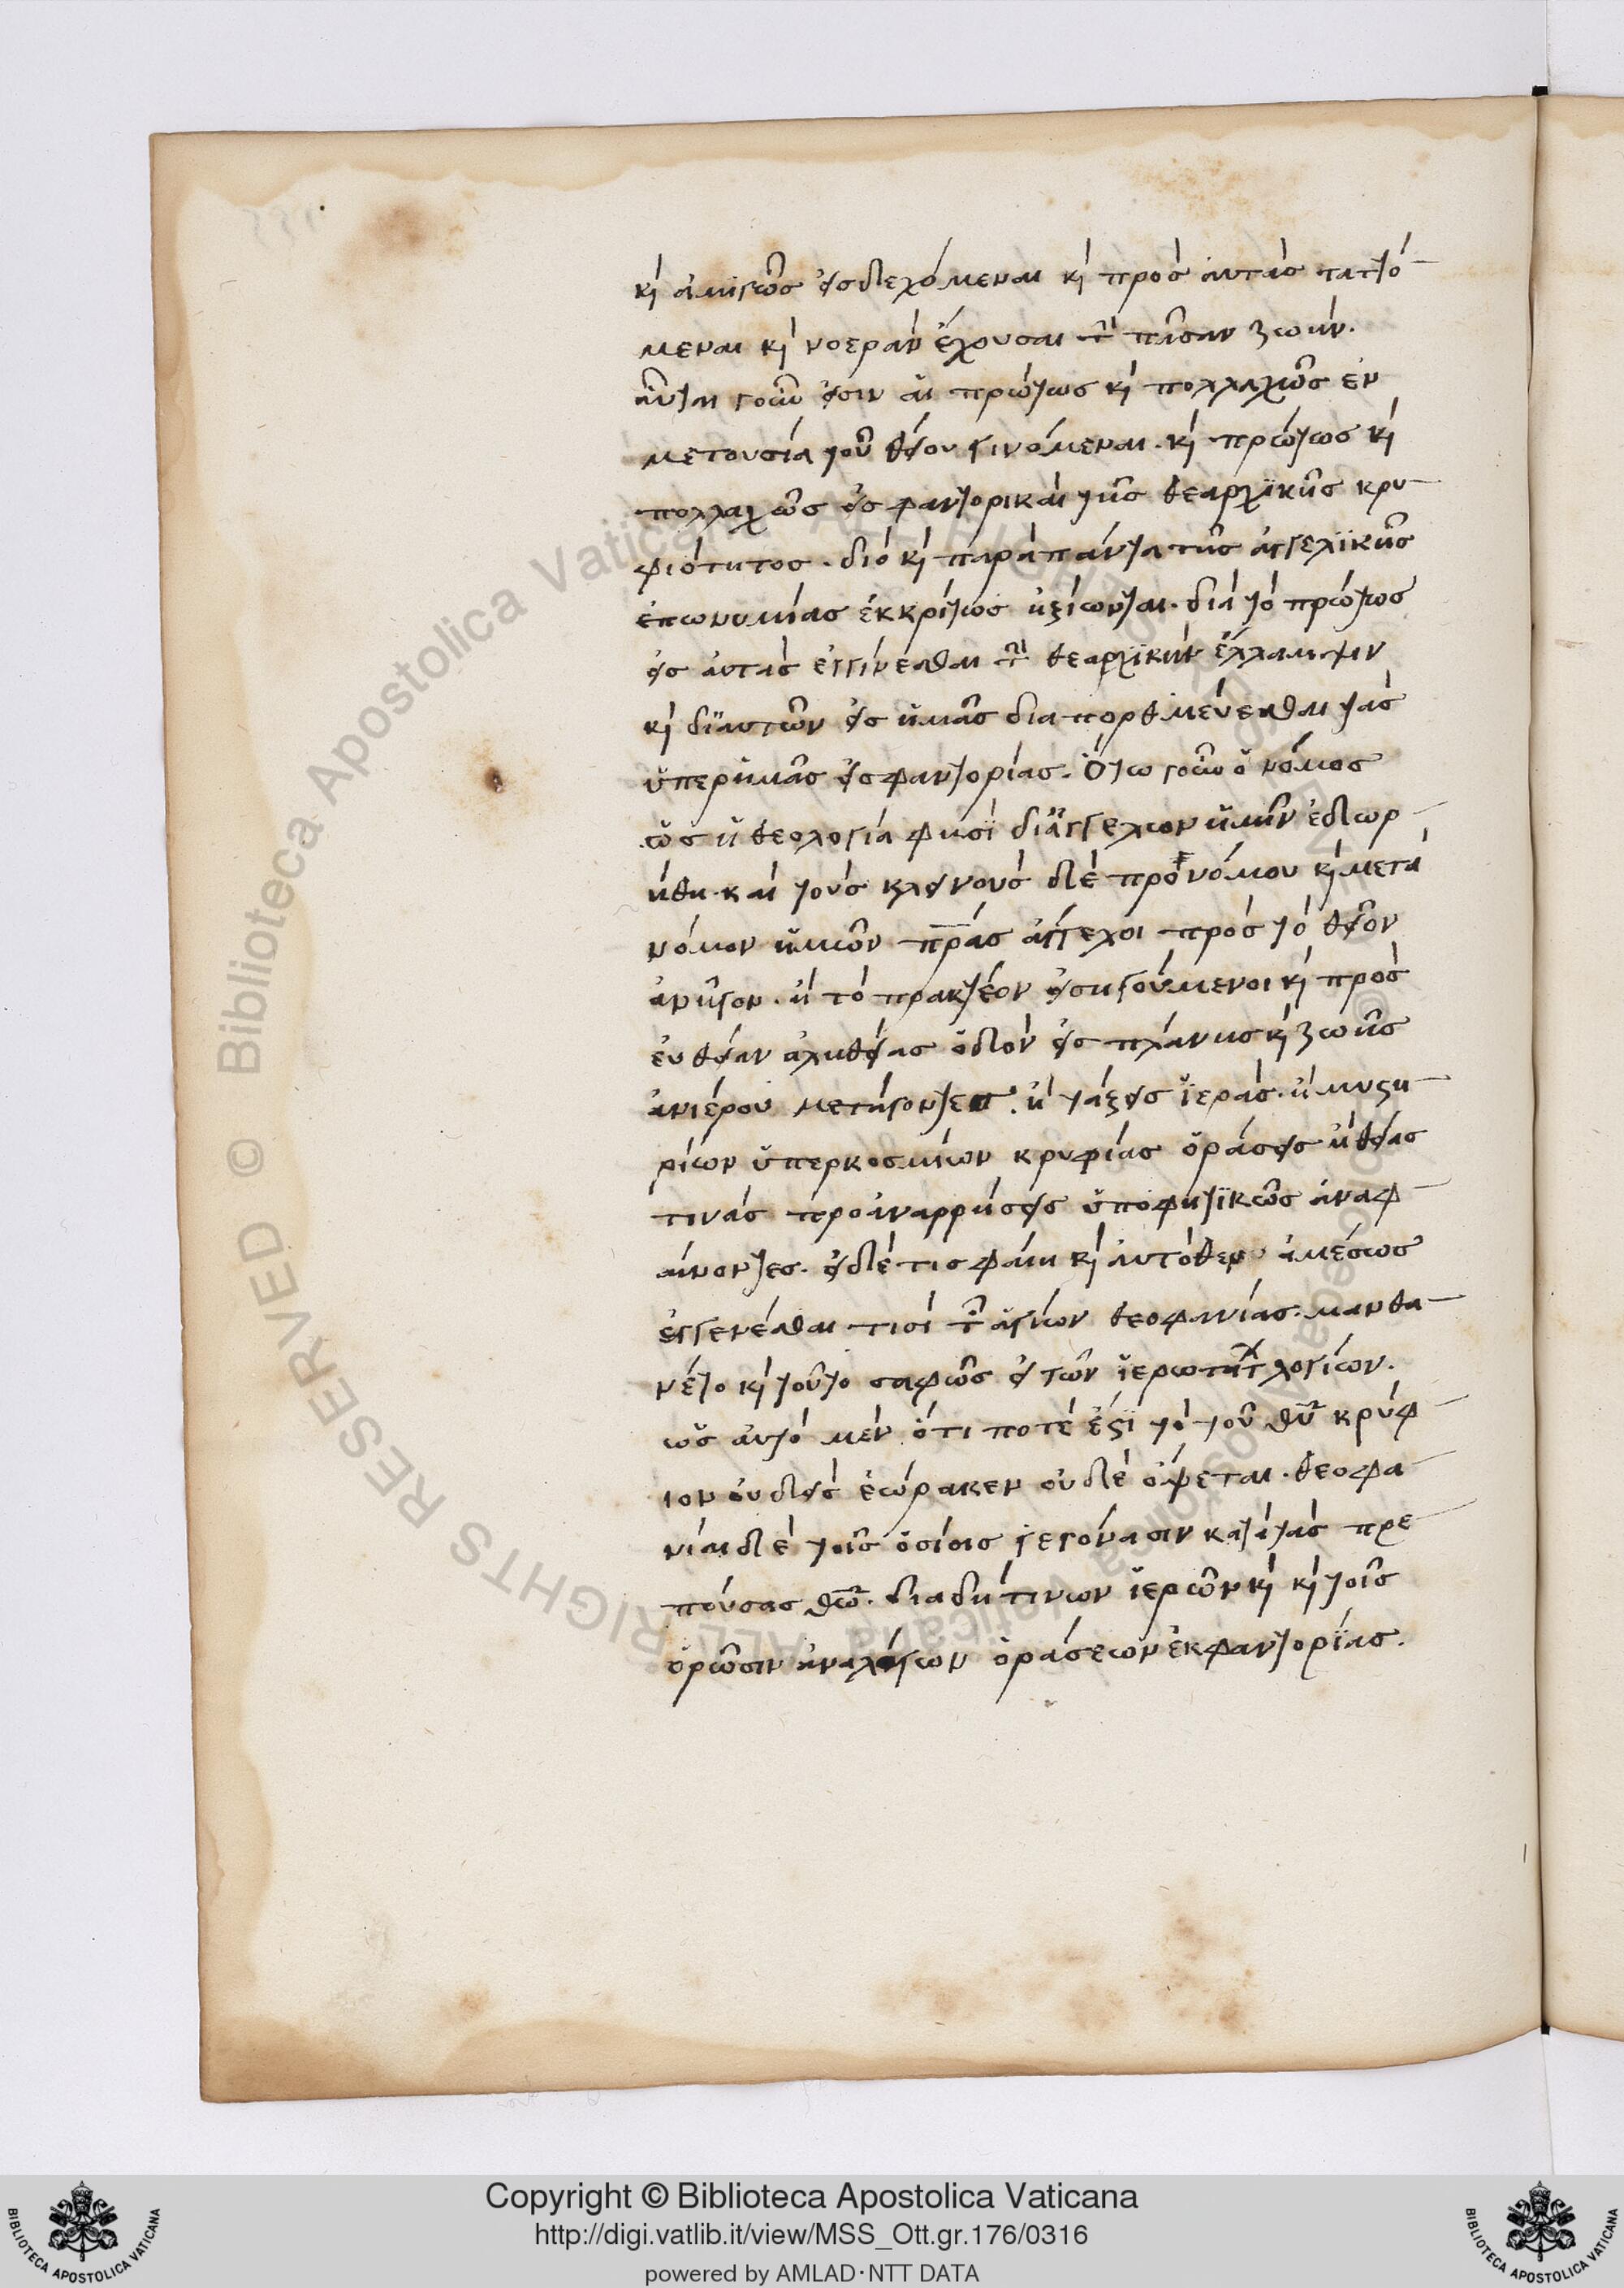 κὶ ἀμιγῶς εἰσδεχόμεναι κὶ πρὸς αὐτὰς τατυό-
μεναι κὶ νοερὰν ἔχουσαι τὴν πᾶσαν ζωήν.
αὗται γοῦν εἰσιν αἱ πρώτως κὶ πολλαχῶς ἐν
μετουσία τοῦ θείου γινόμεναι. κὶ πρώτως κὶ
πολλαχῶς εἰσφαντορικαὶ τῆς θεαρχϊκῆς κρυ-
φιότητος. διὸ κὶ παρὰ πάντα τῆς ἀγγελϊκῆς
ἐπωνυμίας ἐκκρίτως ἠξίωνται. διὰ τὸ πρώτως
εἰς αὐτὰς ἐγγινέσθαι τὴν θεαρχϊκὴν ἔλλαμψιν
κὶ δι᾽ αὐτῶν εἰς ἡμᾶς διαπορθμεύεσθαι τὰς
ὑπερ ἡμᾶς εἰσφαντορίας. Ὅτω γοῦν ὁ νόμος
ὡς ἡ θεολογία φησὶ δι᾽ ἀγγέλων ἡμῖν ἐδωρ-
ήθη. καὶ τοὺς κλεινοὺς δὲ πρὸ νόμου κὶ μετὰ
νόμον ἡμῶν πρας ἄγγελοι πρὸς τὸ θεῖον
ἀνῆγον. ἢ τὸ πρακτέον εἰσηγούμενοι κὶ πρὸς
εὐθεῖαν ἀληθείας ὁδὸν εἰς πλάνης κὶ ζωῆς
ἀνιέρου μετάγοντες. ἢ τάξεις ἱεράς. ἢ μυστη-
ρίων ὑπερκοσμίων κρυφίας ὁράσεις ἢ θείας
τινὰς προαναρρήσεις ὑποφητϊκῶς ἀναφ-
αίνοντες. εἰ δέ τις φαίη κὶ αὐτόθεν ἀμέσως
ἐγγενέσθαι τισὶ τῶν ἁγίων θεοφανίας. μανθα-
νέτο κὶ τοῦτο σαφῶς ἐι τῶν ἱερωτάτ λογίων.
ὡς αὐτὸ μὲν ὅτι ποτέ ἐστϊ τὸ τοῦ θυ κρύφ-
ιον οὐδεὶς ἑώρακεν οὐδὲ ὄψεται. θεοφα-
νίαι δὲ τοῖς ὁσίοις γεγόνασιν κατὰ τὰς πρε-
πούσας θῶ. διαδήτινων ἱερῶν κὶ κὶ τοῖς
ὁρῶσιν ἀναλόγων ὁράσεων ἐκφαντορίας.
Copyright © Biblioteca Apostolica Vaticana
http://digi.vatlib.it/view/MSS_Ott.gr.176/0316
powered by AMLAD·NTT DATA